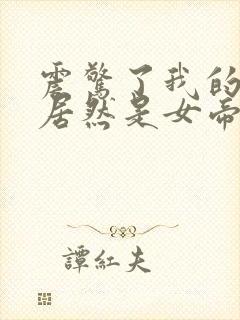 震驚了我的
居然是女帝
譚紅夫